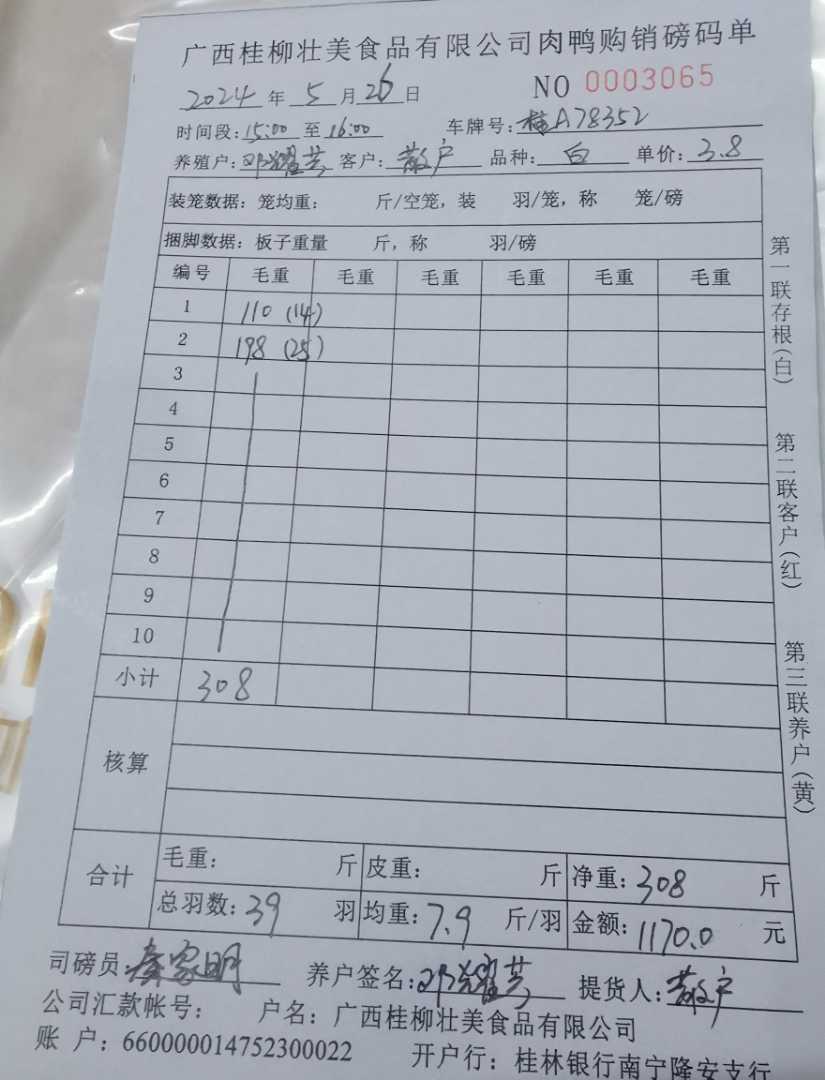 广西桂柳壮美食品有限公司肉鸭购销磅码单
2024 年 5 月 26 日 NO 0003065
时间段：15:00 至 16:00 车牌号：桂A78352
养殖户：邓耀芸 客户：散户 品种：白 单价：3.8
装笼数据：笼均重： 斤/空笼，装 羽/笼，称 笼/磅
捆脚数据：板子重量 斤，称 羽/磅
编号 毛重 毛重 毛重 毛重 毛重 毛重
1 110 (14)
2 198 (25)
3
4
5
6
7
8
9
10
小计 308
核算
合计 毛重： 斤 皮重： 斤 净重：308 斤
总羽数：39 羽 均重：7.9 斤/羽 金额：1170.0 元
司磅员：秦家明 养户签名：邓耀芸 提货人：散户
公司汇款帐号： 户名：广西桂柳壮美食品有限公司
账 户：660000014752300022 开户行：桂林银行南宁隆安支行
第一联存根（白）
第二联客户（红）
第三联养户（黄）